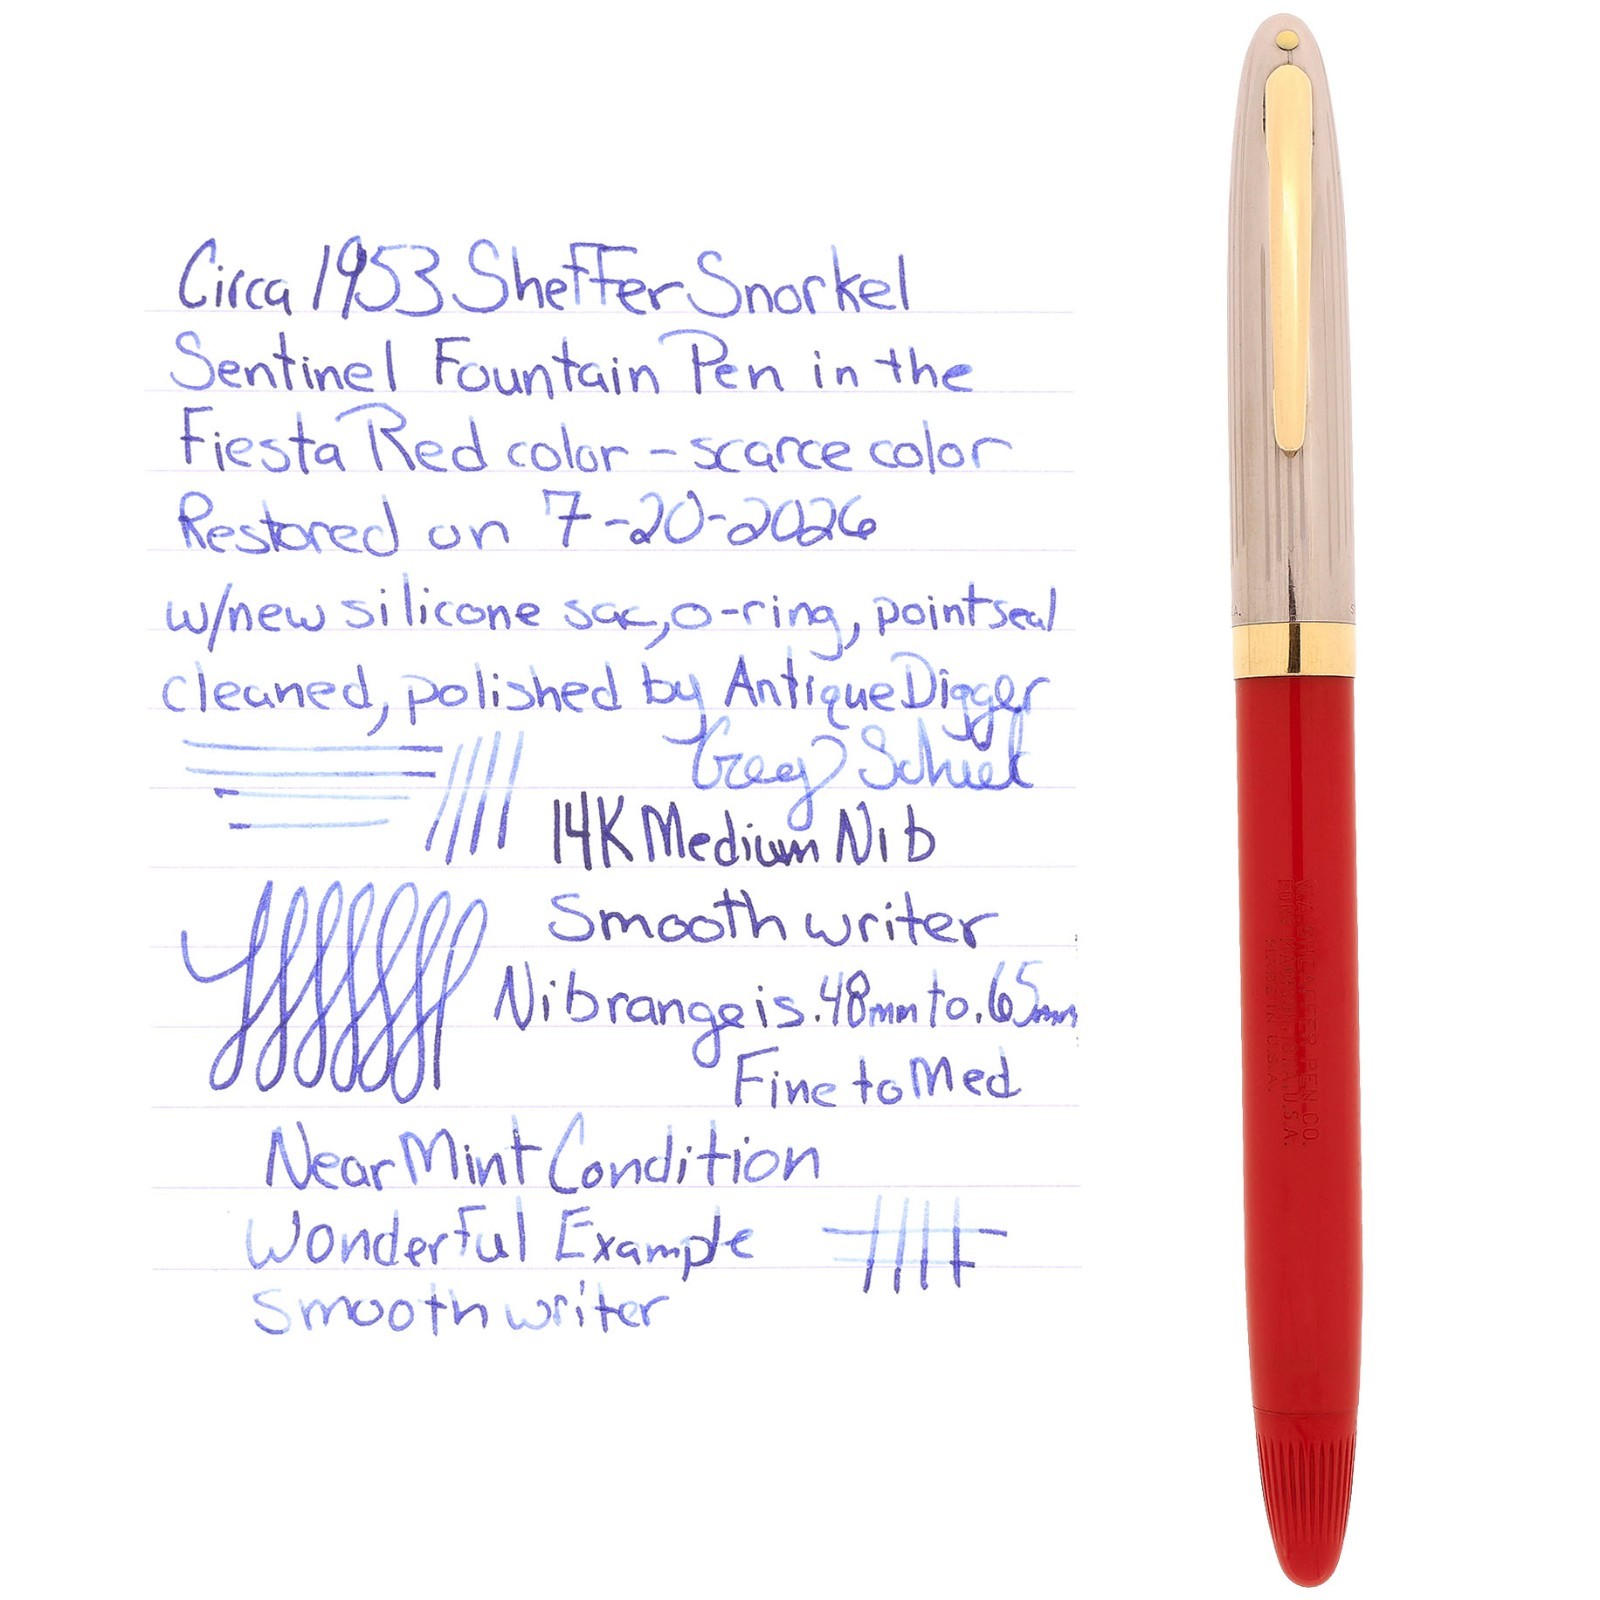 Circa 1953 Sheffer Snorkel
Sentinel Fountain Pen in the
Fiesta Red color - scarce color
Restored on 7-20-2026
w/new silicone sac, o-ring, point seal
cleaned, polished by Antique Digger
Greg
14K Medium Nib
Smooth writer
Nib range is .48mm to .65mm
Fine to Med
Near Mint Condition
Wonderful Example
Smooth writer
PEN CO.
U.S.A.
IN U.S.A.